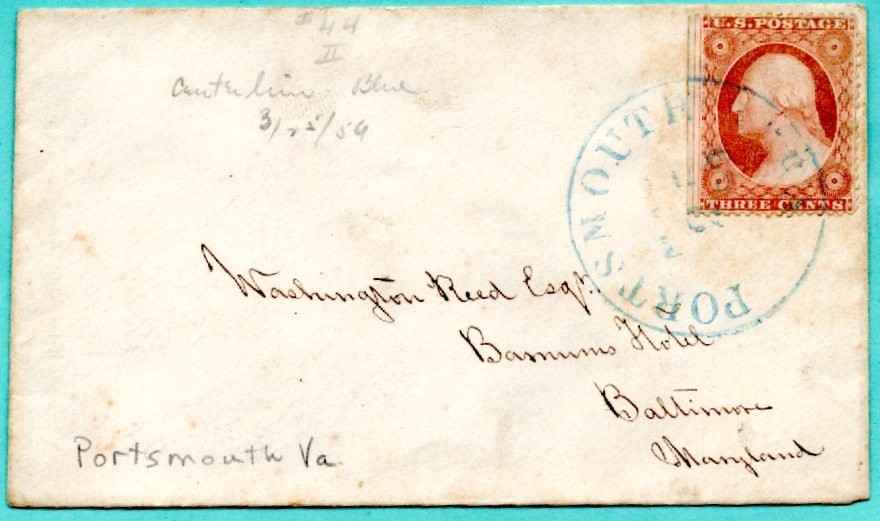 # 44
II
Centerline Blue
3/25/59
U.S. POSTAGE
THREE CENTS
PORTSMOUTH
Washington Reed Esqr.
Barnums Hotel
Baltimore
Maryland
Portsmouth Va.